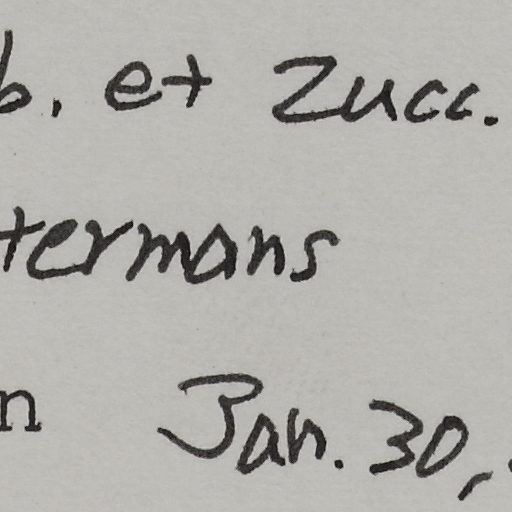 b. et Zucc.
termans
n Jan. 30,